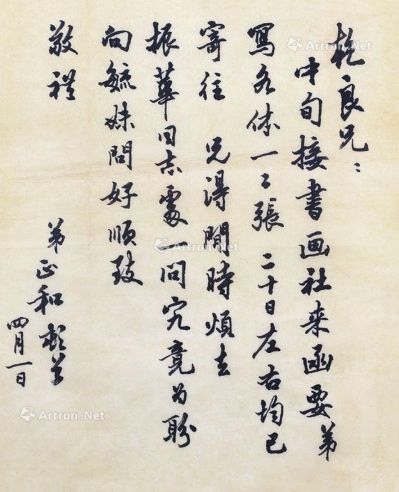 札良兄：
中旬接書画社来函要弟
寫各体一二張二十日左右均已
寄往 兄得閒時煩去
振華同志處一問究竟为盼
向毓妹問好順致
敬禮
弟正和
四月一日
Artron.Net
Artron.Net
Artron.Net
Artron.Net